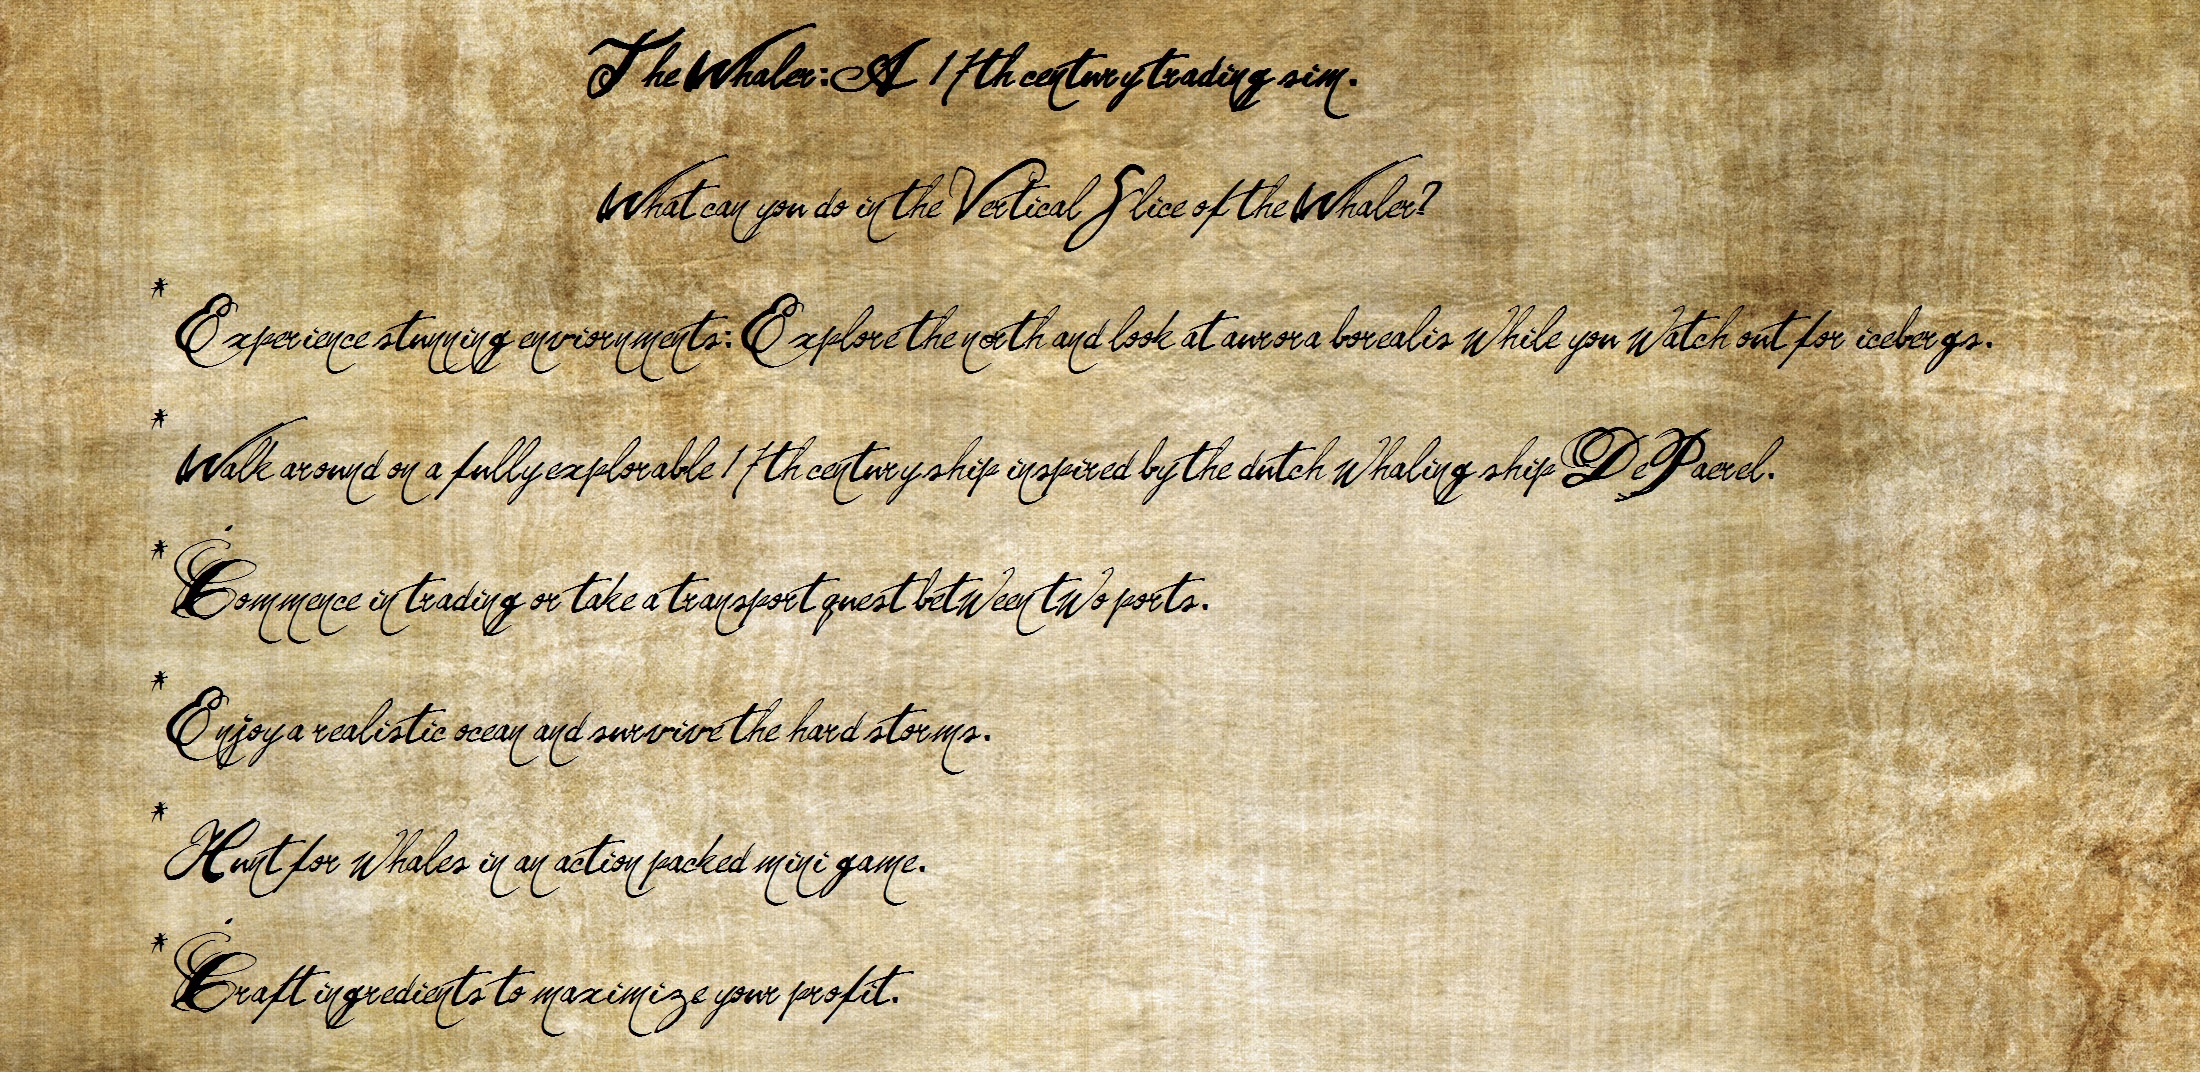 The Whaler: A 17th century trading sim.
What can you do in the Vertical Slice of the Whaler?
* Experience stunning enviornments: Explore the north and look at aurora borealis While you Watch out for icebergs.
* Walk around on a fully explorable 17th century ship inspired by the dutch Whaling ship De Paerel.
* Commence in trading or take a transport quest betWeen tWo ports.
* Enjoy a realistic ocean and survive the hard storms.
* Hunt for Whales in an action packed mini game.
* Craft ingredients to maximize your profit.